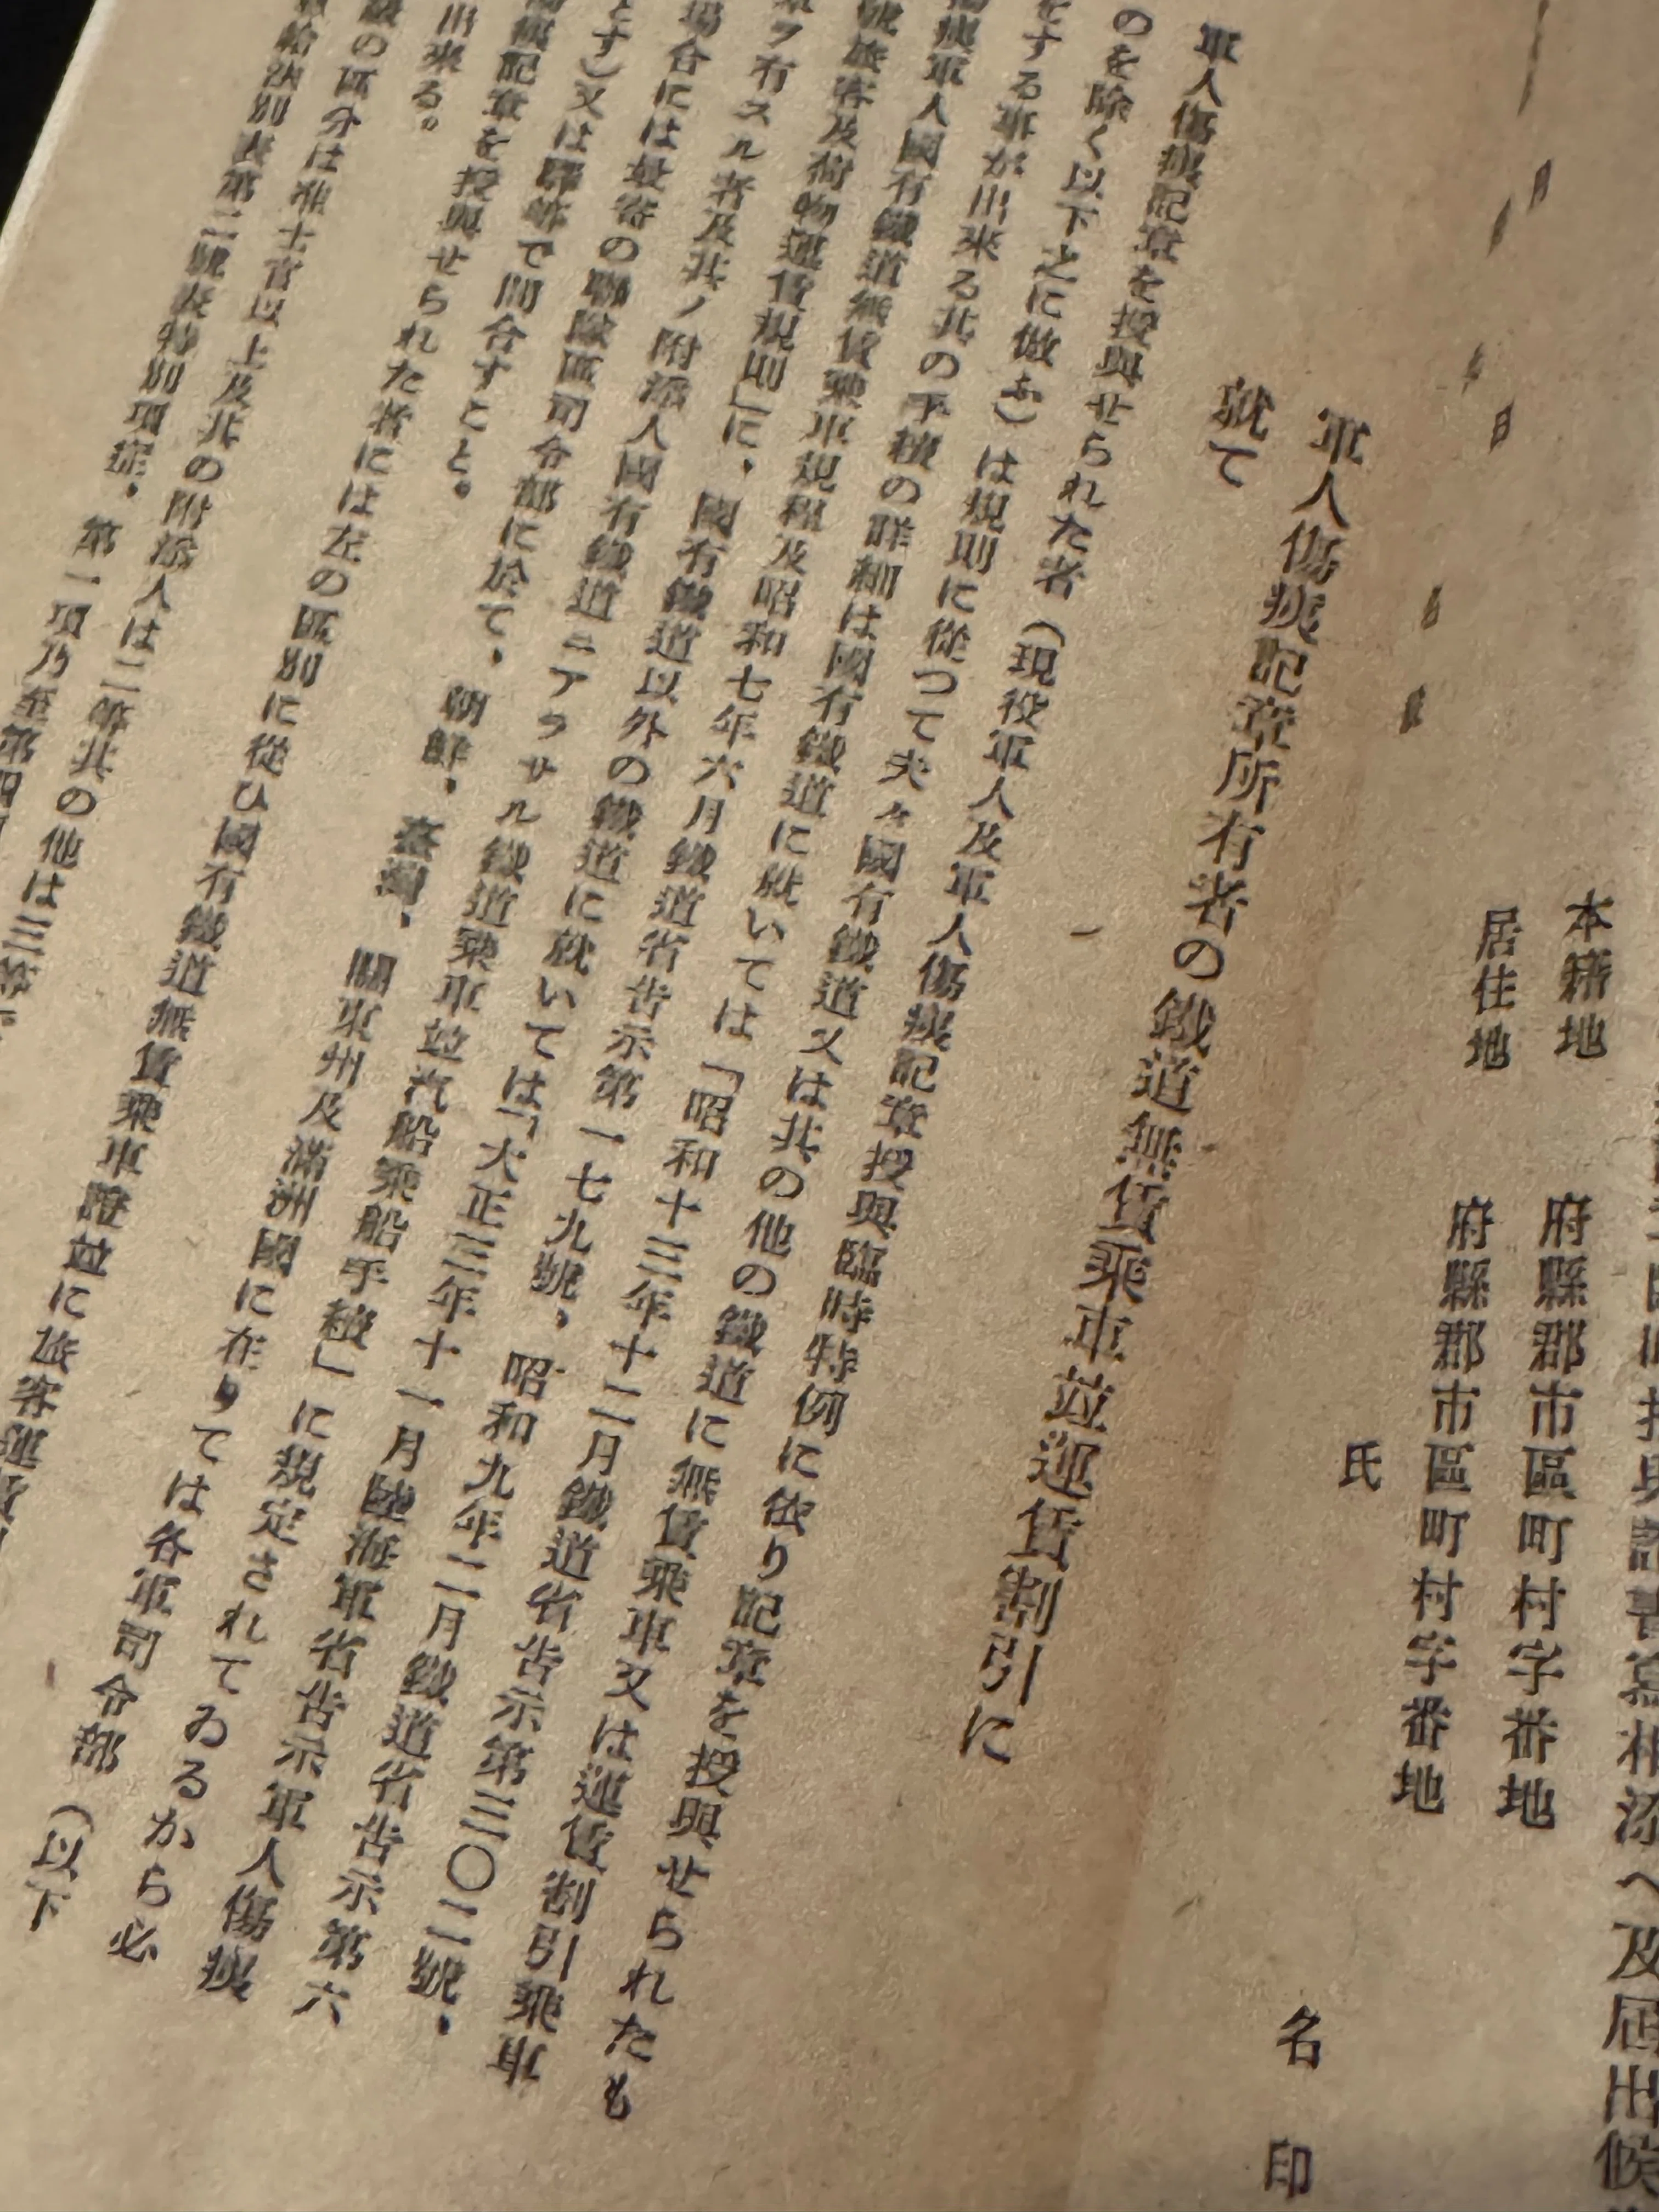 及屆出候
本籍地　府縣郡市區町村字番地
居住地　府縣郡市區町村字番地
氏　名　印
軍人傷痍記章所有者の鐵道無賃乘車竝運賃割引に
就て
軍人傷痍記章を授與せられた者（現役軍人及軍人傷痍記章授與臨時特例に依り記章を授與せられたも
のを除く以下之に倣ふ）は規則に從つて夫々國有鐵道又は其の他の鐵道に無賃乘車又は運賃割引乘車
をする事が出来る其の手續の詳細は國有鐵道に就いては「昭和十三年十二月鐵道省告示第三〇二號、
傷痍軍人國有鐵道無賃乘車規程及昭和七年六月鐵道省告示第一七九號、昭和九年二月鐵道省告示第六
號旅客及荷物運賃規則」に、國有鐵道以外の鐵道に就いては「大正三年十一月陸海軍省告示軍人傷痍
ヲ有スル者及其ノ附添人國有鐵道ニアラサル鐵道乘車竝汽船乘船手續」に規定されてゐるから必
場合には最寄の聯隊區司令部に於て、朝鮮、臺灣、關東州及滿洲國に在りては各軍司令部（以下
す）又は驛等で問合すこと。
傷痍記章を授與せられた者には左の區別に從ひ國有鐵道無賃乘車證竝に旅客運賃
出来る。
の區分は准士官以上及其の附添人は二等其の他は三等。
給法別表第二號表特別項症、第一項乃至第四